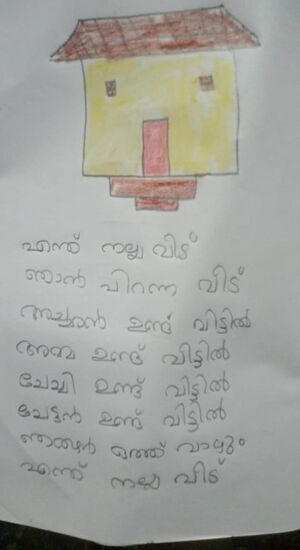 എന്ത് നല്ല വീട്
ഞാൻ പിറന്ന വീട്
അച്ഛൻ ഉണ്ട് വീട്ടിൽ
അമ്മ ഉണ്ട് വീട്ടിൽ
ചേച്ചി ഉണ്ട് വീട്ടിൽ
ചേട്ടൻ ഉണ്ട് വീട്ടിൽ
ഞങ്ങൾ ഒത്ത് വാഴും
എന്ത് നല്ല വീട്